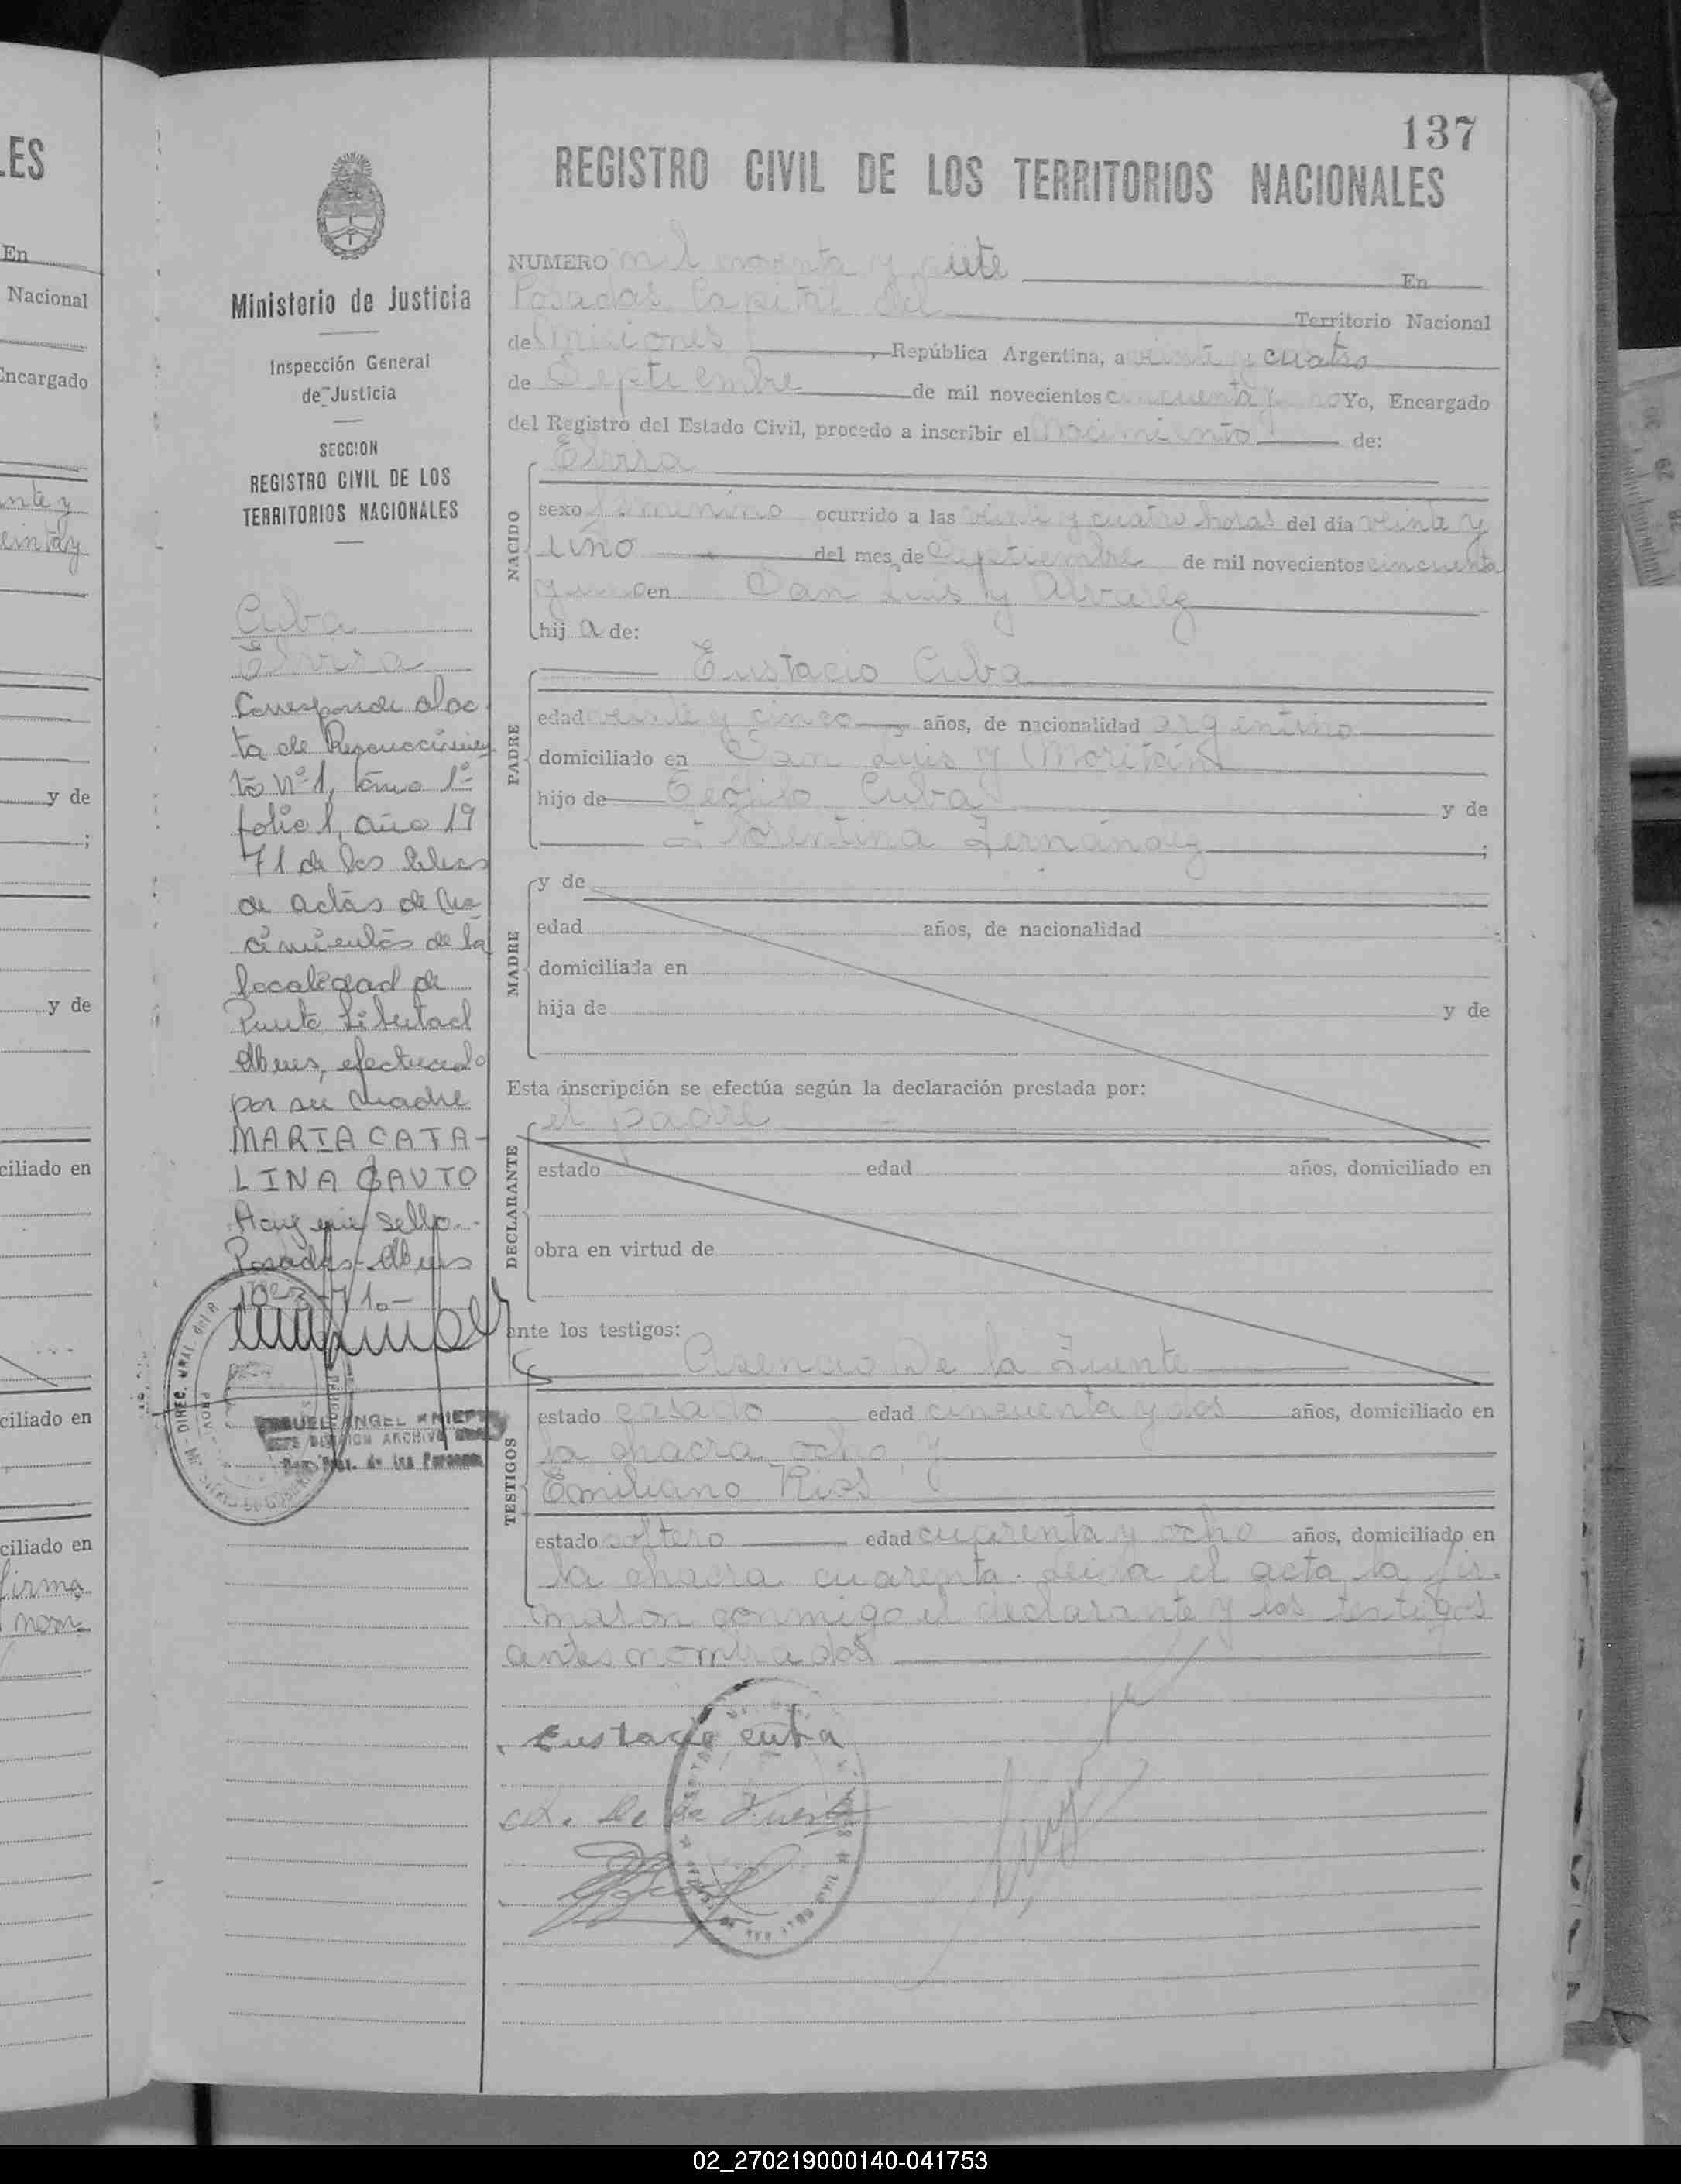 137
REGISTRO CIVIL DE LOS TERRITORIOS NACIONALES
Ministerio de Justicia
Inspección General
de Justicia
SECCION
REGISTRO CIVIL DE LOS
TERRITORIOS NACIONALES
Cuba
Elvira
Corresponde al ac
ta de Reconocimien
to Nº 1, tomo 1º
folio 1, año 19
71 de los libros
de actas de Na
cimientos de la
localidad de
Puerto Libertad
Mnes, efectuado
por su madre
MARIA CATA-
LINA GAUTO
Hay un sello.-
Posadas-Mnes
NUMERO mil noventa y siete En
Posadas Capital del Territorio Nacional
de Misiones, República Argentina, a veinte y cuatro
de Septiembre de mil novecientos cincuenta y uno Yo, Encargado
del Registro del Estado Civil, procedo a inscribir el Nacimiento de:
NACIDO
Elvira
sexo femenino ocurrido a las veinte y cuatro horas del día veinte y
uno del mes de Septiembre de mil novecientos cincuenta
y uno en San Luis y Alvarez
hija de:
PADRE
Eustacio Cuba
edad veinte y cinco años, de nacionalidad argentino
domiciliado en San Luis y Moritán
hijo de Teófilo Cuba y de
Florentina Fernández ;
MADRE
y de
edad años, de nacionalidad
domiciliada en
hija de y de
Esta inscripción se efectúa según la declaración prestada por:
el padre
DECLARANTE
estado edad años, domiciliado en
obra en virtud de
ante los testigos:
TESTIGOS
Asencio De la Fuente
estado casado edad cincuenta y dos años, domiciliado en
la chacra ocho y
Emiliano Rios
estado soltero edad cuarenta y ocho años, domiciliado en
la chacra cuarenta. Leida el acta la fir-
maron conmigo el declarante y los testigos
antes nombrados
Eustacio cuba
A. De la Fuente
02_270219000140-041753